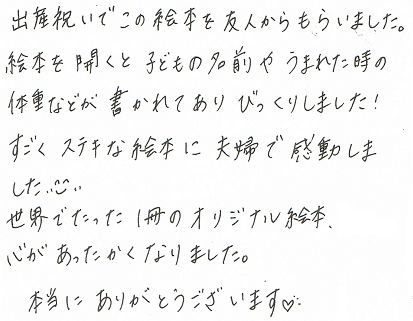 出産祝いでこの絵本を友人からもらいました。
絵本を開くと子どもの名前やうまれた時の
体重などが書かれてありびっくりしました!
すごくステキな絵本に夫婦で感動しま
した
世界でたった1冊のオリジナル絵本、
心があったかくなりました。
本当にありがとうございます♡